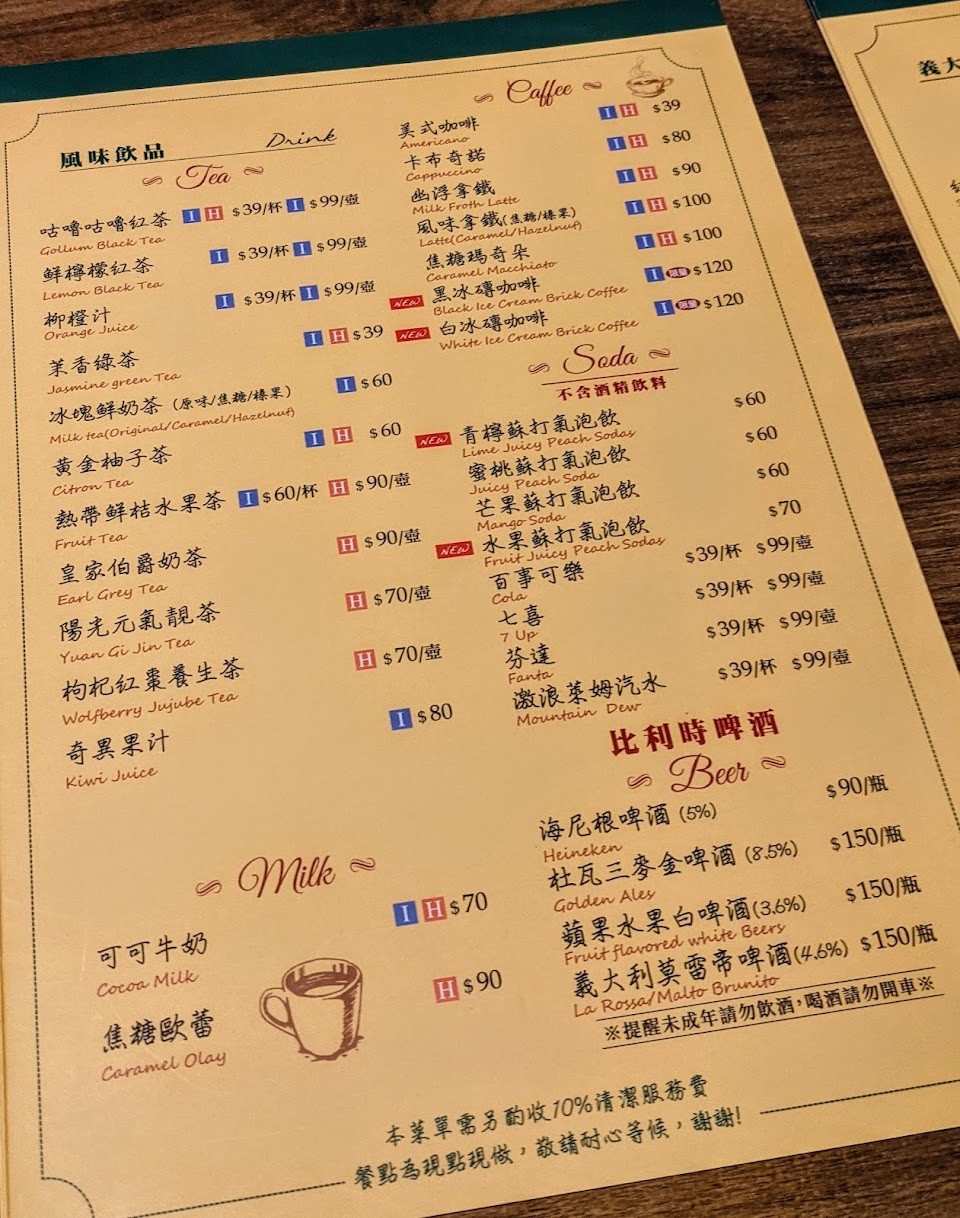 風味飲品 Drink
Tea
咕嚕咕嚕紅茶 I H $39/杯 I $99/壺
Gollum Black Tea
鮮檸檬紅茶 I $39/杯 I $99/壺
Lemon Black Tea
柳橙汁 I $39/杯 I $99/壺
Orange Juice
茉香綠茶 I H $39
Jasmine green Tea
冰塊鮮奶茶 (原味/焦糖/榛果) I $60
Milk tea(Original/Caramel/Hazelnut)
黃金柚子茶 I H $60
Citron Tea
熱帶鮮桔水果茶 I $60/杯 H $90/壺
Fruit Tea
皇家伯爵奶茶 H $90/壺
Earl Grey Tea
陽光元氣靚茶 H $70/壺
Yuan Gi Jin Tea
枸杞紅棗養生茶 H $70/壺
Wolfberry Jujube Tea
奇異果汁 I $80
Kiwi Juice
Milk
可可牛奶 I H $70
Cocoa Milk
焦糖歐蕾 H $90
Caramel Olay
Caffee
美式咖啡 I H $39
Americano
卡布奇諾 I H $80
Cappuccino
幽浮拿鐵 I H $90
Milk Froth Latte
風味拿鐵(焦糖/榛果) I H $100
Latte(Caramel/Hazelnut)
焦糖瑪奇朵 I H $100
Caramel Macchiato
NEW 黑冰磚咖啡 I 限量 $120
Black Ice Cream Brick Coffee
NEW 白冰磚咖啡 I 限量 $120
White Ice Cream Brick Coffee
Soda
不含酒精飲料
NEW 青檸蘇打氣泡飲 $60
Lime Juicy Peach Sodas
蜜桃蘇打氣泡飲 $60
Juicy Peach Soda
芒果蘇打氣泡飲 $60
Mango Soda
NEW 水果蘇打氣泡飲 $70
Fruit Juicy Peach Sodas
百事可樂 $39/杯 $99/壺
Cola
七喜 $39/杯 $99/壺
7 Up
芬達 $39/杯 $99/壺
Fanta
激浪萊姆汽水 $39/杯 $99/壺
Mountain Dew
比利時啤酒
Beer
海尼根啤酒 (5%) $90/瓶
Heineken
杜瓦三麥金啤酒 (8.5%) $150/瓶
Golden Ales
蘋果水果白啤酒(3.6%) $150/瓶
Fruit flavored white Beers
義大利莫雷帝啤酒(4.6%) $150/瓶
La Rossa/Malto Brunito
※提醒未成年請勿飲酒，喝酒請勿開車※
本菜單需另酌收10%清潔服務費
餐點為現點現做，敬請耐心等候，謝謝!
義大